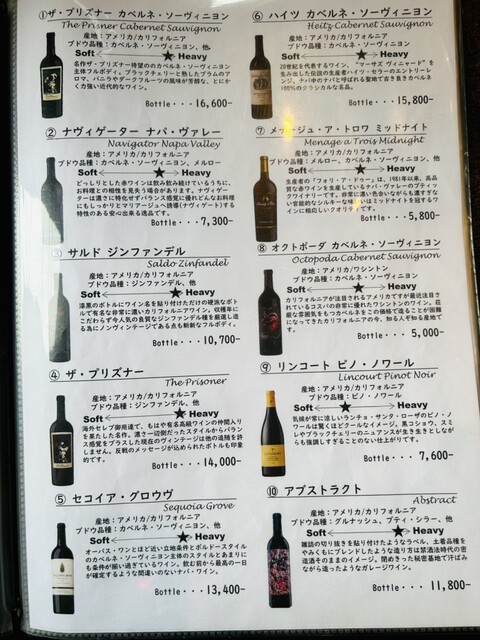 ①ザ・プリズナー カベルネ・ソーヴィニヨン
The Prisner Cabernet Sauvignon
産地：アメリカ/カリフォルニア
ブドウ品種：カベルネ・ソーヴィニヨン、他
Soft ★ Heavy
名作ザ・プリズナー待望のカベルネ・ソーヴィニヨン
主体フルボディ。ブラックチェリーと熟したプラムのアロ
マ、バニラやダークフルーツの風味が芳醇な、とにか
く力強い近代的なワイン。
Bottle・・・ 16,600-
② ナヴィゲーター ナパ・ヴァレー
Navigator Napa Valley
産地：アメリカ/カリフォルニア
ブドウ品種：カベルネ・ソーヴィニヨン、メルロー
Soft ★ Heavy
どっしりとした赤ワインは飲み飲み続けているうちに、
お料理との相性を見失う場合があります。ナヴィゲー
ターは濃さに特化せずバランス感覚に優れどんなお料
理にもしっかりとマリアージュへ誘導(ナヴィゲート)する
特性のある安心出来る逸品です。
Bottle・・・ 7,300-
③ サルド ジンファンデル
Saldo Zinfandel
産地：アメリカ/カリフォルニア
ブドウ品種：ジンファンデル、他
Soft ★ Heavy
漆黒のボトルにワイン名を貼り付けただけの硬派なボ
トルで有名な非常に濃いカリフォルニアワイン。収穫年に
こだわらず今人気の良質なジンファンデル種を厳選し造
る為にノンヴィンテージである点も斬新なフルボディ。
Bottle・・・ 10,700-
④ ザ・プリズナー
The Prisoner
産地：アメリカ/カリフォルニア
ブドウ品種：ジンファンデル、他
Soft ★ Heavy
海外セレブ御用達で、もはや有名高級ワインの仲間入り
を果たした名作。濃さ一辺倒だったスタイルからバラン
ス感覚をプラスした現在のヴィンテージは他の追随を許
しません。反戦のメッセージが込められたボトルも印象
的です。
Bottle・・・ 14,000-
⑤ セコイア・グロウヴ
Sequoia Grove
産地：アメリカ/カリフォルニア
ブドウ品種：カベルネ・ソーヴィニヨン、他
Soft ★ Heavy
オーパス・ワンとほど近い立地条件とボルドースタイル
のカベルネ・ソーヴィニヨン主体のスタイルとあまりに
も条件が揃い過ぎているワイン。飲む前から最高の一日
が確定するような間違いのないナパ・ワイン。
Bottle・・・ 13,400-
⑥ ハイツ カベルネ・ソーヴィニヨン
Heitz Cabernet Sauvignon
産地：アメリカ/カリフォルニア
ブドウ品種：カベルネ・ソーヴィニヨン
Soft ★ Heavy
20世紀を代表するワイン、"マーサズ ヴィニヤード"を
生み出した伝説の生産者ハイツ・セラーのエントリーレ
ンジ。ナパ中のナパと呼ばれる聖地で育き良きカベルネ
100%のクラシカルな名品。
Bottle・・・ 15,800-
⑦ メナージュ・ア・トロワ ミッドナイト
Menage a Trois Midnight
産地：アメリカ/カリフォルニア
ブドウ品種：メルロー、カベルネ・ソーヴィニヨン、他
Soft ★ Heavy
生産者の「フォリ・ア・ドゥー」は、1981年以来、高品
質な赤ワインを生産しているナパ・ヴァレーのブティッ
クワイナリーです。非常に濃い色合いながらも濃すぎな
い官能的なシルキーな味わいはミッドナイトを冠するワ
インに相応しいクオリティです。
Bottle・・・ 5,800-
⑧ オクトポーダ カベルネ・ソーヴィニヨン
Octopoda Cabernet Sauvignon
産地：アメリカ/ワシントン
ブドウ品種：カベルネ・ソーヴィニヨン
Soft ★ Heavy
カリフォルニアが注目されるアメリカですが最近注目さ
れているコスパの非常に優れたワシントンのワイン。巨
厳な雰囲気をもつカベルネをこの価格で造ることが困難
になってきたカリフォルニアの今、知る人ぞ知る産地で
す。
Bottle・・・ 5,000-
⑨ リンコート ピノ・ノワール
Lincourt Pinot Noir
産地：アメリカ/カリフォルニア
ブドウ品種：ピノ・ノワール
Soft ★ Heavy
気候が常に涼しいランチョ・サンタ・ローザのピノ・ノ
ワールは驚くほどクールな味わい。黒コショウ、スミ
レやブラックチェリーのニュアンスが生き生きとしなが
らも強調しすぎることのない仕上がりです。
Bottle・・・ 7,600-
⑩ アブストラクト
Abstract
産地：アメリカ/カリフォルニア
ブドウ品種：グルナッシュ、プティ・シラー、他
Soft ★ Heavy
雑誌の切り抜きを貼り付けたようなラベル、土着品種を
やみくもにブレンドしたような造り方は禁酒法時代の密
造酒そのままのイメージ。閉めきった秘密基地で汗ばみ
ながら造ったようなガレージワイン。
Bottle・・・ 11,800-